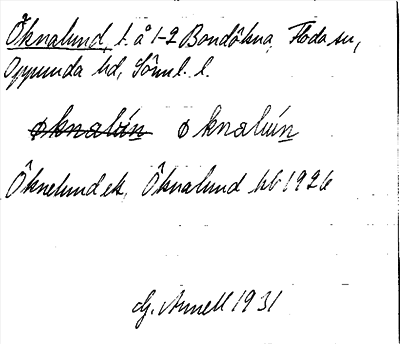 Öknalund, t. å 1-2 Bondökna, Floda sn,
Oppunda hd, Söml. l.
øknalún øknalún
Öknelund ek, Öknalund kb 1926
G. Annell 1931